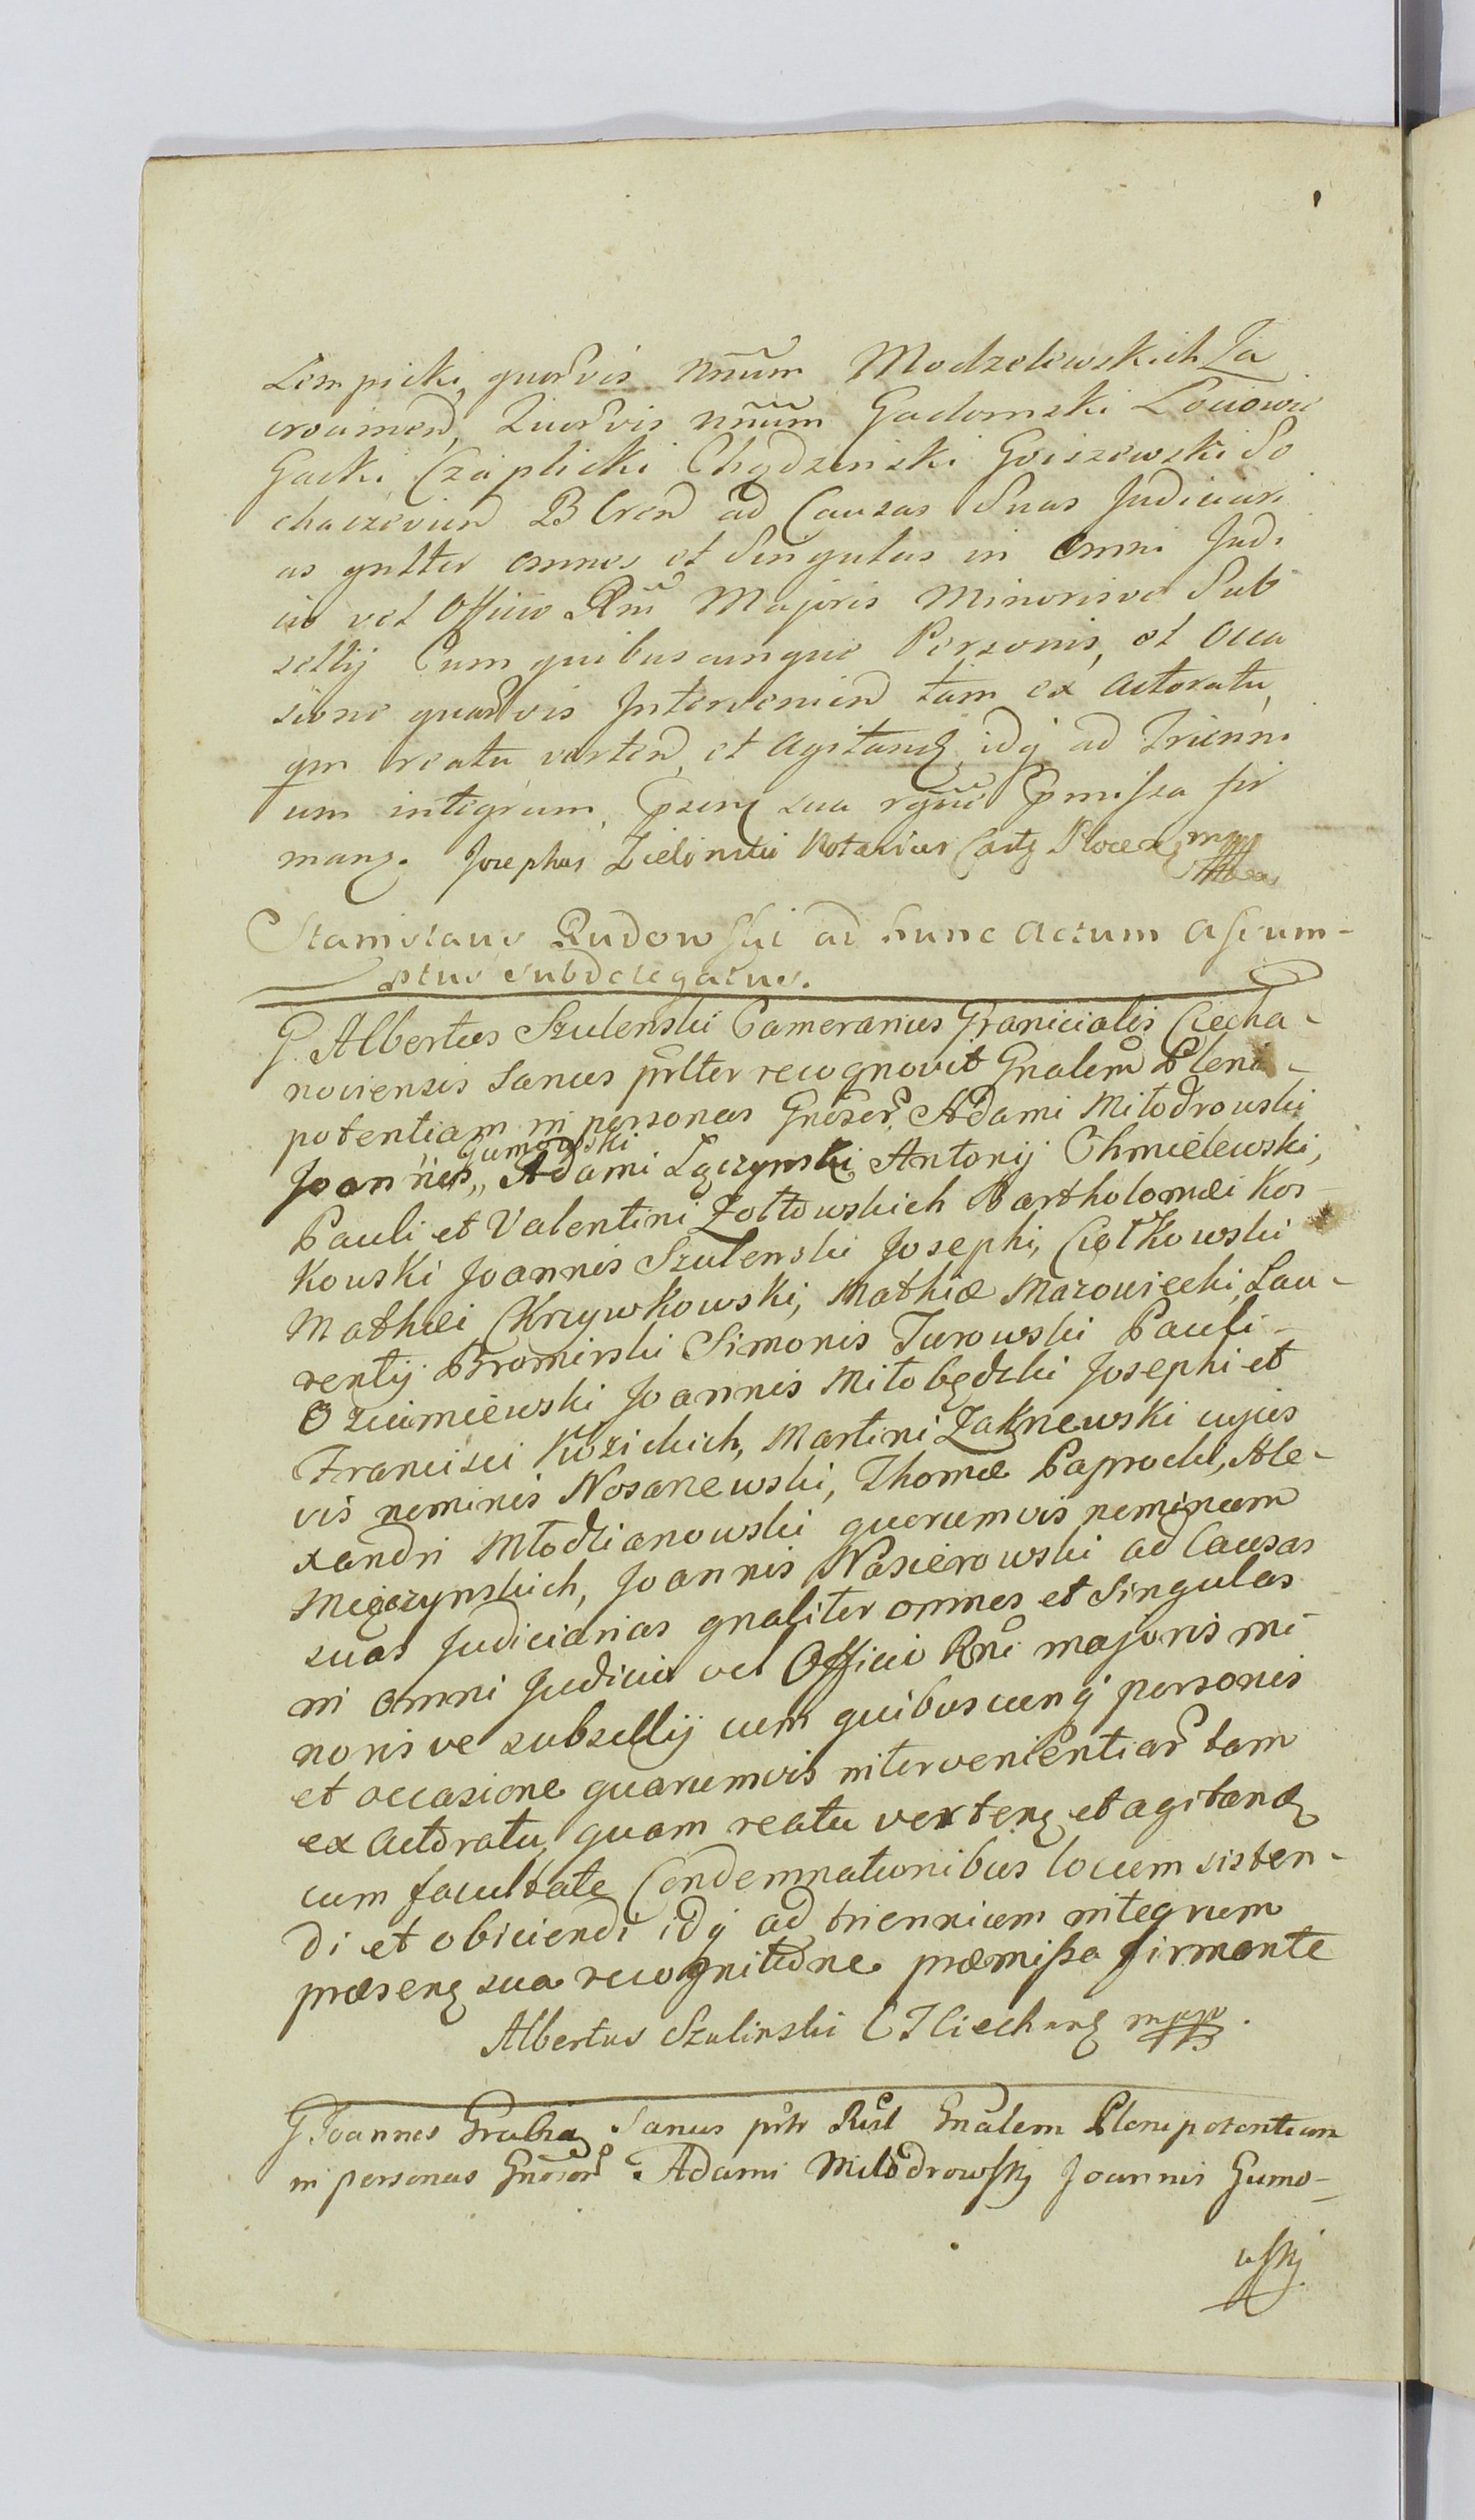 Lempicki, quorvis nnum Modzelewskich Za
crocimen, Quorvis nnum Gadomski Lociowic
Gacki Czaplicki Chądzenski Goiszewski So
chaczevien B Cren ad Causas Suas Judiciari
as gnltter omnes et Singulas in omni Judi
cio vel Officio Rni Majoris Minorisve Sub
sellij Cum quibuscunque Personis, et occa
sione quarvis Intervenien tam ex Actoratu,
qm reatu verten, et Agitand, idq ad Trienni
um integrum, Pzen sua rgnne Pmissa fir
man. Josephus Zielinski Notarius Castr Plocen mpp
Stanislaus Rudowski ad hunc actum assum-
ptus subdelegatus.
G. Albertus Szulenski Cameranius Granicialis Ciecha-
noviensis sanus prltter recognovit Gnalem Pleni-
potentiam in personas Gnosor Adami Miłodrowski
Gumowski
Joannis,, Adami Łączynski Antonij Chmielewski,
Pauli et Valentini Zołtowskich Bartholomæi Kos-
kowski Joannis Szulenski Josephi, Ciołkowski
Mathæi Chrzywkowski, Mathiæ Mazowiecki, Lau-
rentij Bromirski Simonis Turowski Pauli
Ozdimiewski Joannis Miłobędzki Josephi et
Francisci Kozickich, Martini Zakrzewski cujus
vis neminis Nosarzewski, Thomæ Paprocki, Ale-
xandri Młodzianowski quorumvis neminum
Mięczynskich, Joannis Nasierowski ad Causas
suas Judiciarias gnaliter omnes et Singulas
in omni Judicio vel Officio Rni majoris mi-
noris ve subsellij cum quibuscunq personis
et occasione quarumvis intervenientiar tam
ex actoratu, quam reatu verten et agitand
cum facultate Condemnationibus locum sisten-
di et obiciendi idq ad triennium integrum
præsen sua recognitione præmissa firmante
Albertus Szulinski C G Ciechan mpp.
G. Joannes Grabia Sanus prltr Rūt Gnalem Plenipotentiam
in personas Gnosor Adami Miłodrowskj Joannis Gumo-
wskj